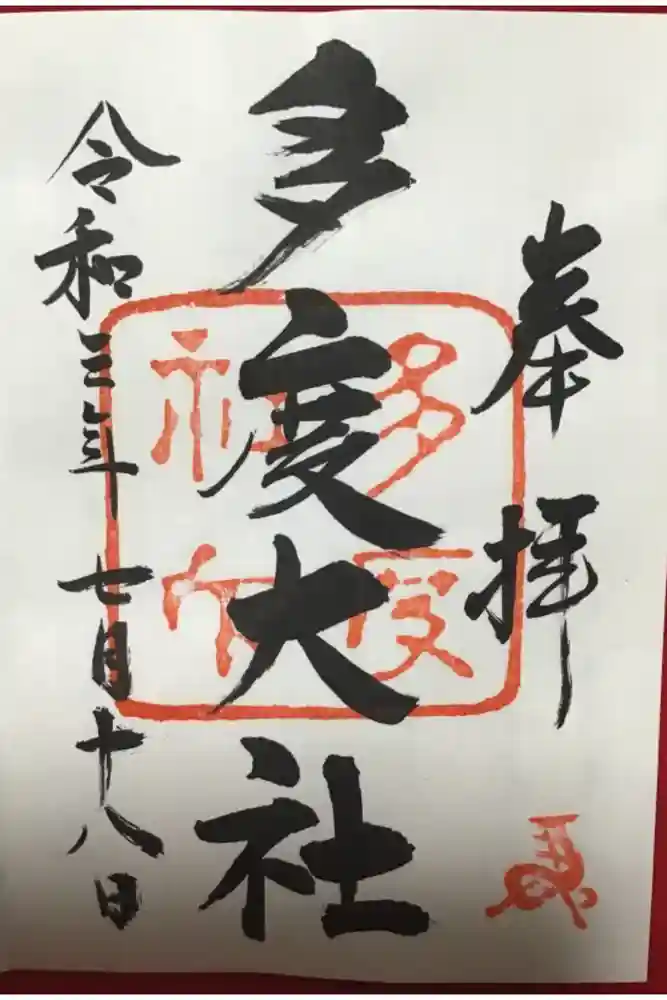 奉拝
多度大社
令和三年七月十八日
多度
社印